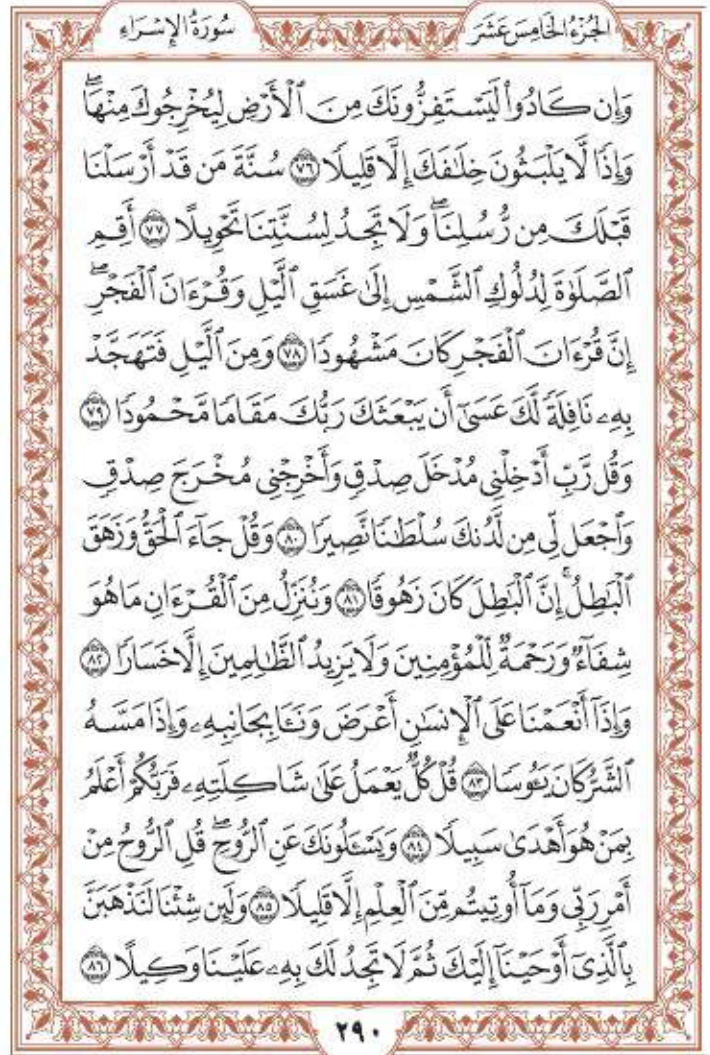 الجُزْءُ الخَامِسَ عَشَرَ
سُورَةُ الإِسْرَاءِ
وَإِن كَادُوا۟ لَيَسْتَفِزُّونَكَ مِنَ ٱلْأَرْضِ لِيُخْرِجُوكَ مِنْهَاۖ
وَإِذًا لَّا يَلْبَثُونَ خِلَٰفَكَ إِلَّا قَلِيلًا ۝٧٦ سُنَّةَ مَن قَدْ أَرْسَلْنَا
قَبْلَكَ مِن رُّسُلِنَاۖ وَلَا تَجِدُ لِسُنَّتِنَا تَحْوِيلًا ۝٧٧ أَقِمِ
ٱلصَّلَوٰةَ لِدُلُوكِ ٱلشَّمْسِ إِلَىٰ غَسَقِ ٱلَّيْلِ وَقُرْءَانَ ٱلْفَجْرِۖ
إِنَّ قُرْءَانَ ٱلْفَجْرِ كَانَ مَشْهُودًا ۝٧٨ وَمِنَ ٱلَّيْلِ فَتَهَجَّدْ
بِهِۦ نَافِلَةً لَّكَ عَسَىٰٓ أَن يَبْعَثَكَ رَبُّكَ مَقَامًا مَّحْمُودًا ۝٧٩
وَقُل رَّبِّ أَدْخِلْنِى مُدْخَلَ صِدْقٍ وَأَخْرِجْنِى مُخْرَجَ صِدْقٍ
وَٱجْعَل لِّى مِن لَّدُنكَ سُلْطَٰنًا نَّصِيرًا ۝٨٠ وَقُلْ جَآءَ ٱلْحَقُّ وَزَهَقَ
ٱلْبَٰطِلُۚ إِنَّ ٱلْبَٰطِلَ كَانَ زَهُوقًا ۝٨١ وَنُنَزِّلُ مِنَ ٱلْقُرْءَانِ مَا هُوَ
شِفَآءٌ وَرَحْمَةٌ لِّلْمُؤْمِنِينَ وَلَا يَزِيدُ ٱلظَّٰلِمِينَ إِلَّا خَسَارًا ۝٨٢
وَإِذَآ أَنْعَمْنَا عَلَى ٱلْإِنسَٰنِ أَعْرَضَ وَنَـَٔا بِجَانِبِهِۦ وَإِذَا مَسَّهُ
ٱلشَّرُّ كَانَ يَـُٔوسًا ۝٨٣ قُلْ كُلٌّ يَعْمَلُ عَلَىٰ شَاكِلَتِهِۦ فَرَبُّكُمْ أَعْلَمُ
بِمَنْ هُوَ أَهْدَىٰ سَبِيلًا ۝٨٤ وَيَسْـَٔلُونَكَ عَنِ ٱلرُّوحِۖ قُلِ ٱلرُّوحُ مِنْ
أَمْرِ رَبِّى وَمَآ أُوتِيتُم مِّنَ ٱلْعِلْمِ إِلَّا قَلِيلًا ۝٨٥ وَلَئِن شِئْنَا لَنَذْهَبَنَّ
بِٱلَّذِىٓ أَوْحَيْنَآ إِلَيْكَ ثُمَّ لَا تَجِدُ لَكَ بِهِۦ عَلَيْنَا وَكِيلًا ۝٨٦
٢٩٠